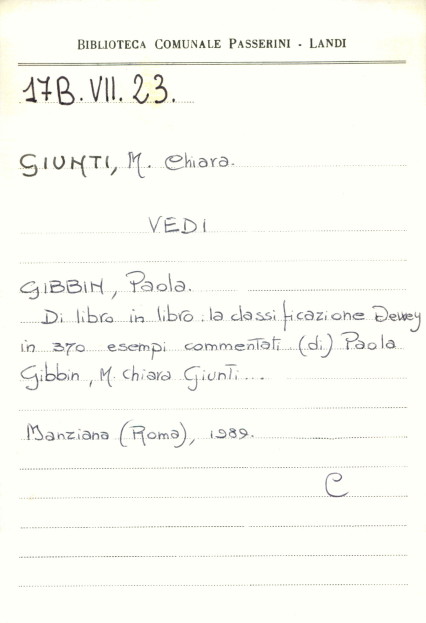 BIBLIOTECA COMUNALE PASSERINI - LANDI
17B. VII. 23.
GIUNTI, M. Chiara.
VEDI
GIBBIN, Paola.
Di libro in libro : la classificazione Dewey
in 370 esempi commentati (di) Paola
Gibbin, M. Chiara Giunti...
Manziana (Roma), 1989.
C